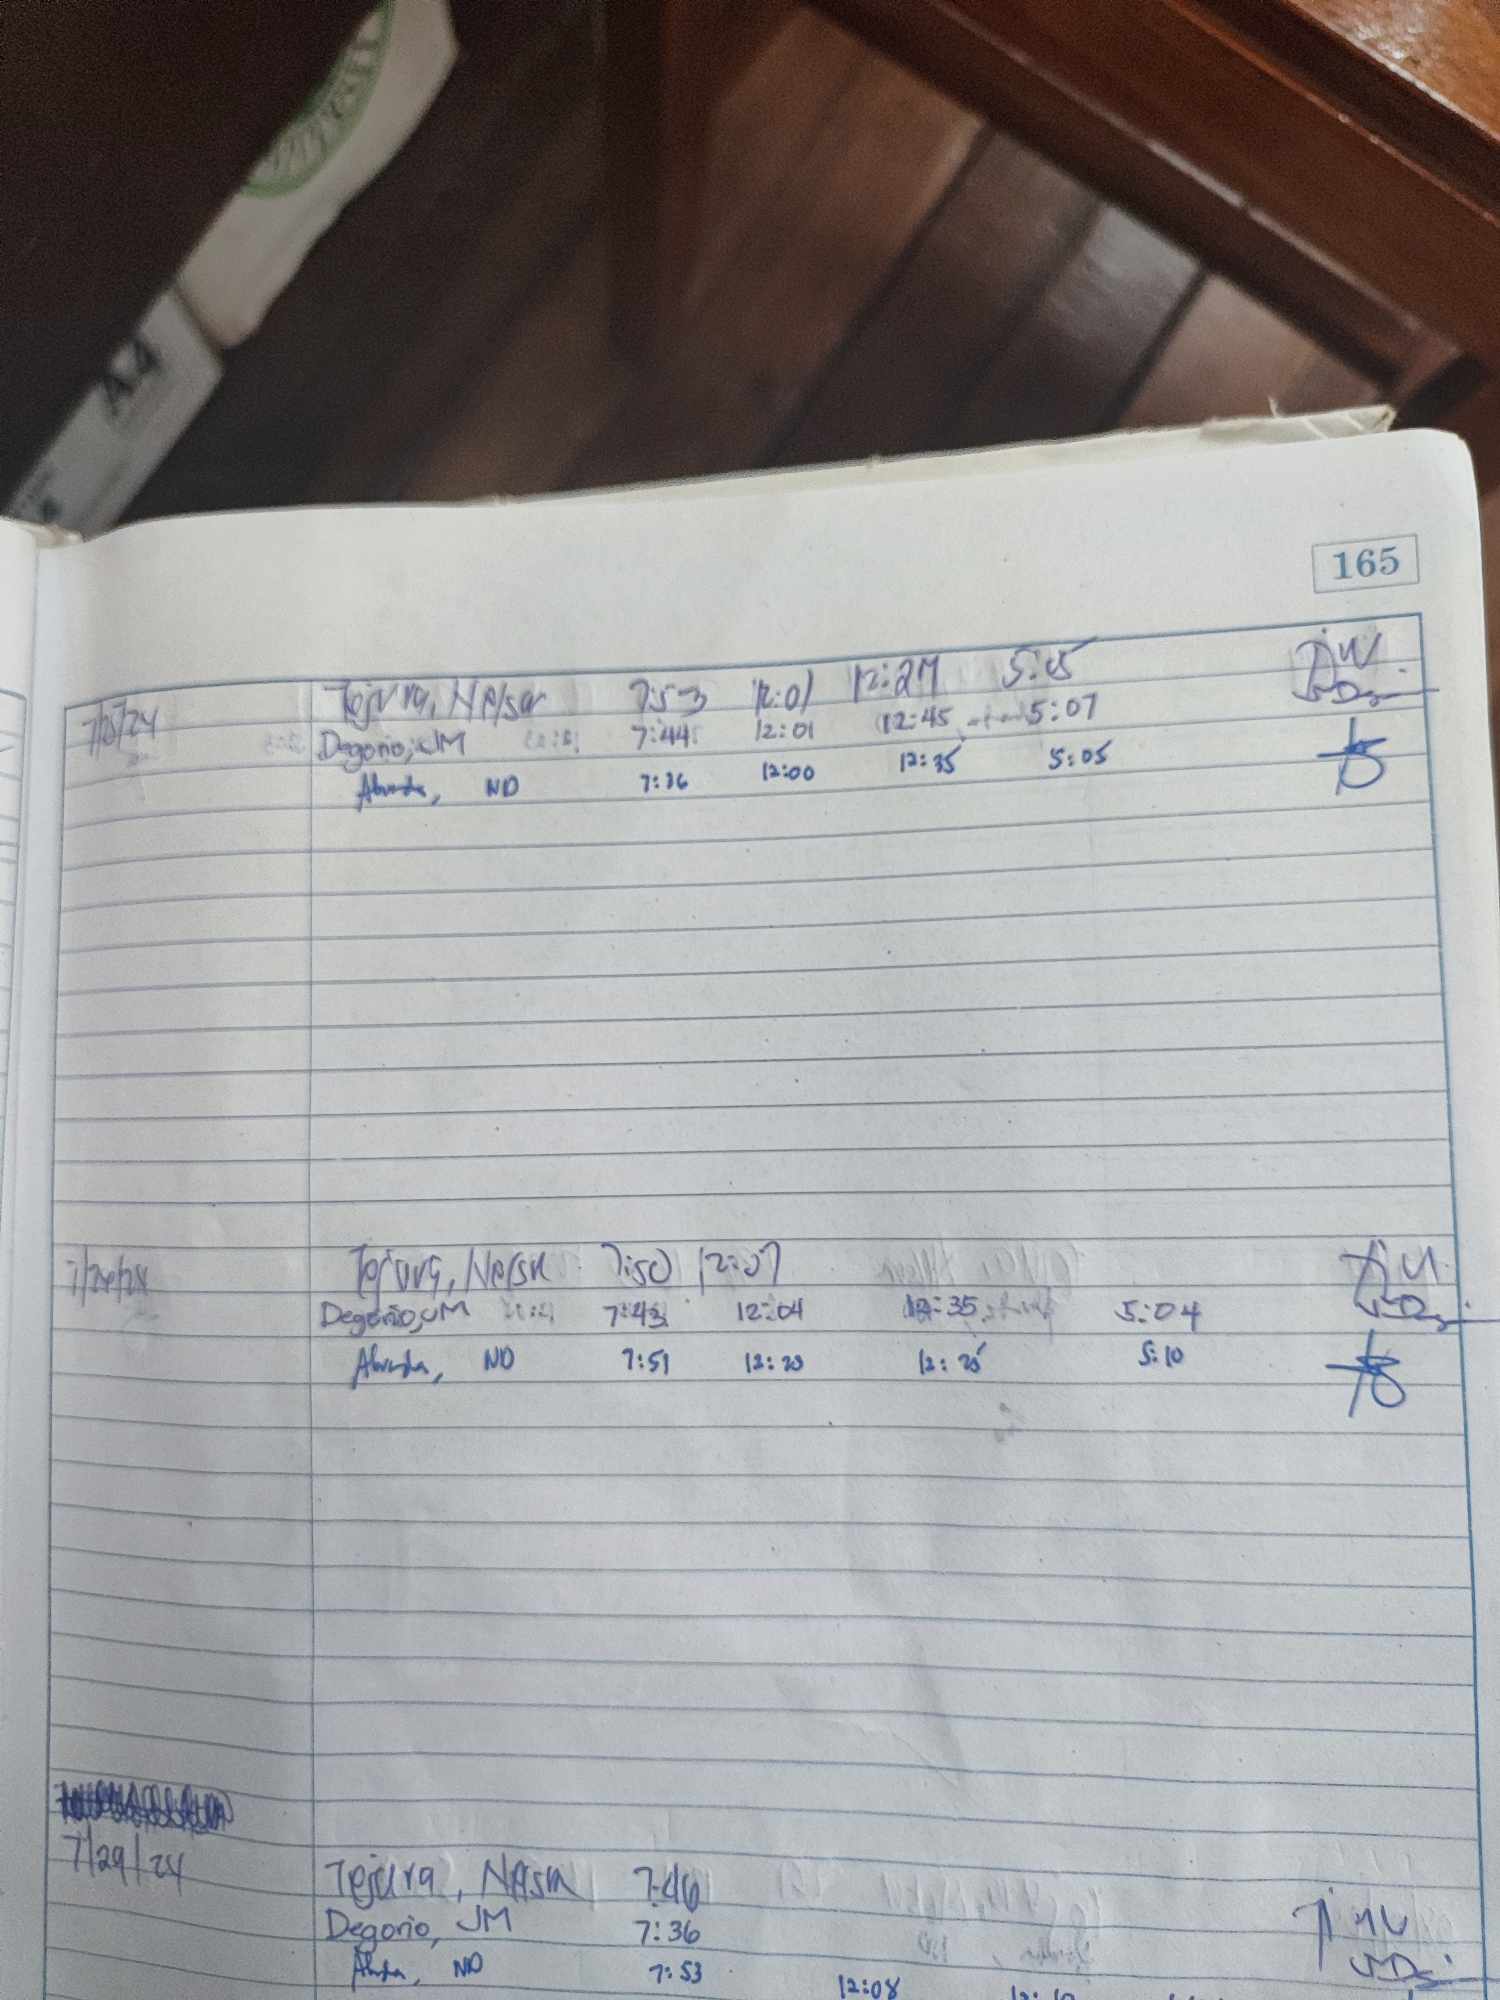 A4
165
7/25/24 Tejura, Nelson 7:53 12:01 12:27 5:05
Degorio, JM 7:44 12:01 12:45 5:07
ND 7:36 12:00 12:35 5:05
Tejura, Nelson 7:50 12:07
Degorio, JM 7:43 12:04 12:35 5:04
ND 7:51 12:20 12:25 5:10
7/29/24
Tejura, Nelson 7:46
Degorio, JM 7:36
ND 7:53 12:08